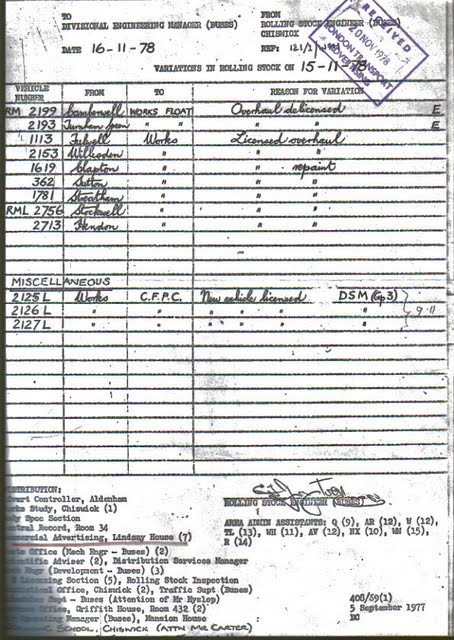 TO FROM
DIVISIONAL ENGINEERING MANAGER (BUSES) ROLLING STOCK ENGINEER (BUSES)
CHISWICK
DATE 16-11-78 REF: 121/1
RECEIVED
20 NOV 1978
LONDON TRANSPORT
ADVERTISING
VARIATIONS IN ROLLING STOCK ON 15-11-78
VEHICLE NUMBER FROM TO REASON FOR VARIATION
RM 2199 Camberwell WORKS FLOAT Overhaul delicensed E
2193 Turnham Green " " " " E
1113 Fulwell Works Licensed overhaul
2153 Willesden " " "
1619 Clapton " " repaint
362 Sutton " " "
1781 Streatham " " "
RML 2756 Stockwell " " "
2713 Hendon " " "
MISCELLANEOUS
2125 L Works C.F.P.C. New vehicle licensed DSM (Gp 3)
2126 L " " " " " " 9-11
2127 L " " " " " "
DISTRIBUTION:
Controller, Aldenham
Works Study, Chiswick (1)
Body Spec Section
Central Record, Room 34
Commercial Advertising, Lindsay House (7)
Office (Mech Engr - Buses) (2)
Scientific Adviser (2), Distribution Services Manager
Engr (Development - Buses) (3)
Licensing Section (5), Rolling Stock Inspection
Office, Chiswick (2), Traffic Supt (Buses)
Supt - Buses (Attention of Mr Hyslop)
Office, Griffith House, Room 432 (2)
Operating Manager (Buses), Mansion House
SCHOOL, CHISWICK (ATTN MR CARTER)
ROLLING STOCK ENGINEER (BUSES)
AREA ADMIN ASSISTANTS: Q (9), AR (12), W (12),
TL (13), WH (11), AV (12), HX (10), WN (15),
R (14)
408/S9(1)
5 September 1977
DC